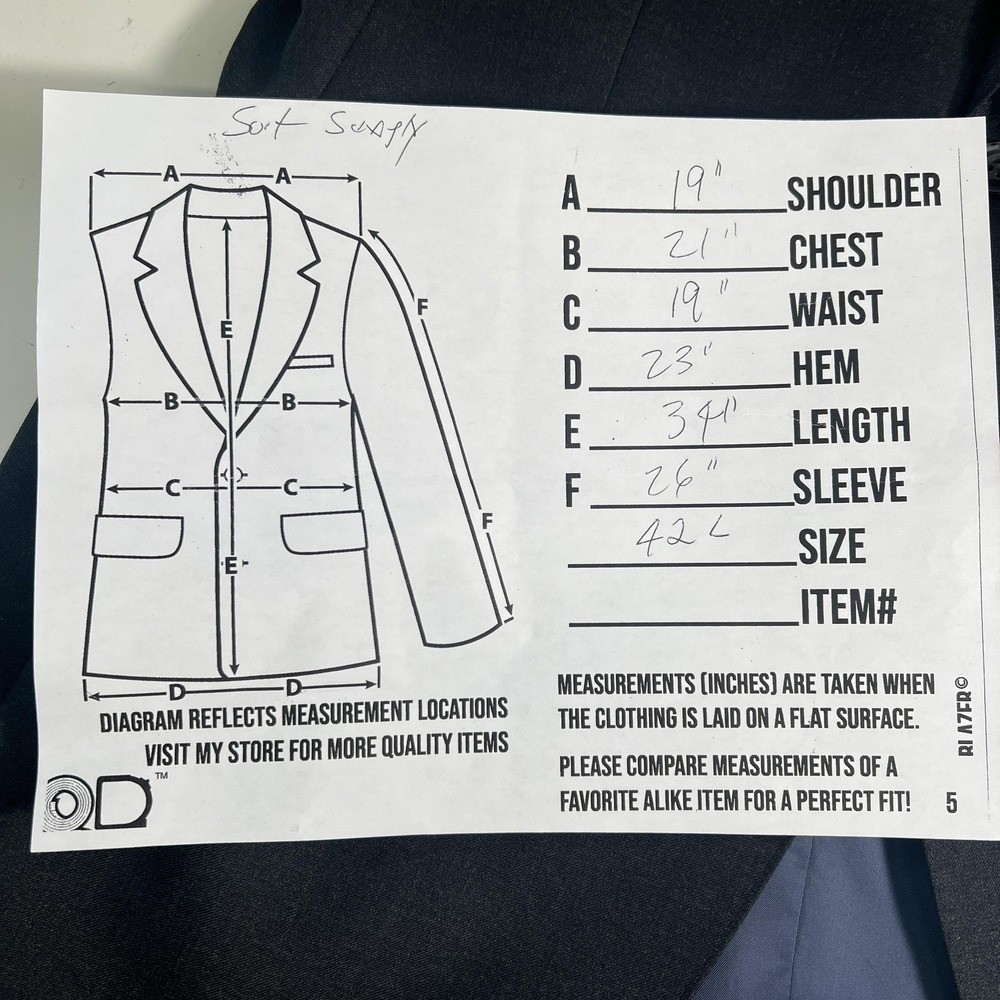 Suit Supply
A A
F
E
B B
C C
F
E
D D
DIAGRAM REFLECTS MEASUREMENT LOCATIONS
VISIT MY STORE FOR MORE QUALITY ITEMS
QD™
A 19" SHOULDER
B 21" CHEST
C 19" WAIST
D 23" HEM
E 34" LENGTH
F 26" SLEEVE
42 L SIZE
ITEM#
MEASUREMENTS (INCHES) ARE TAKEN WHEN
THE CLOTHING IS LAID ON A FLAT SURFACE.
PLEASE COMPARE MEASUREMENTS OF A
FAVORITE ALIKE ITEM FOR A PERFECT FIT!
5